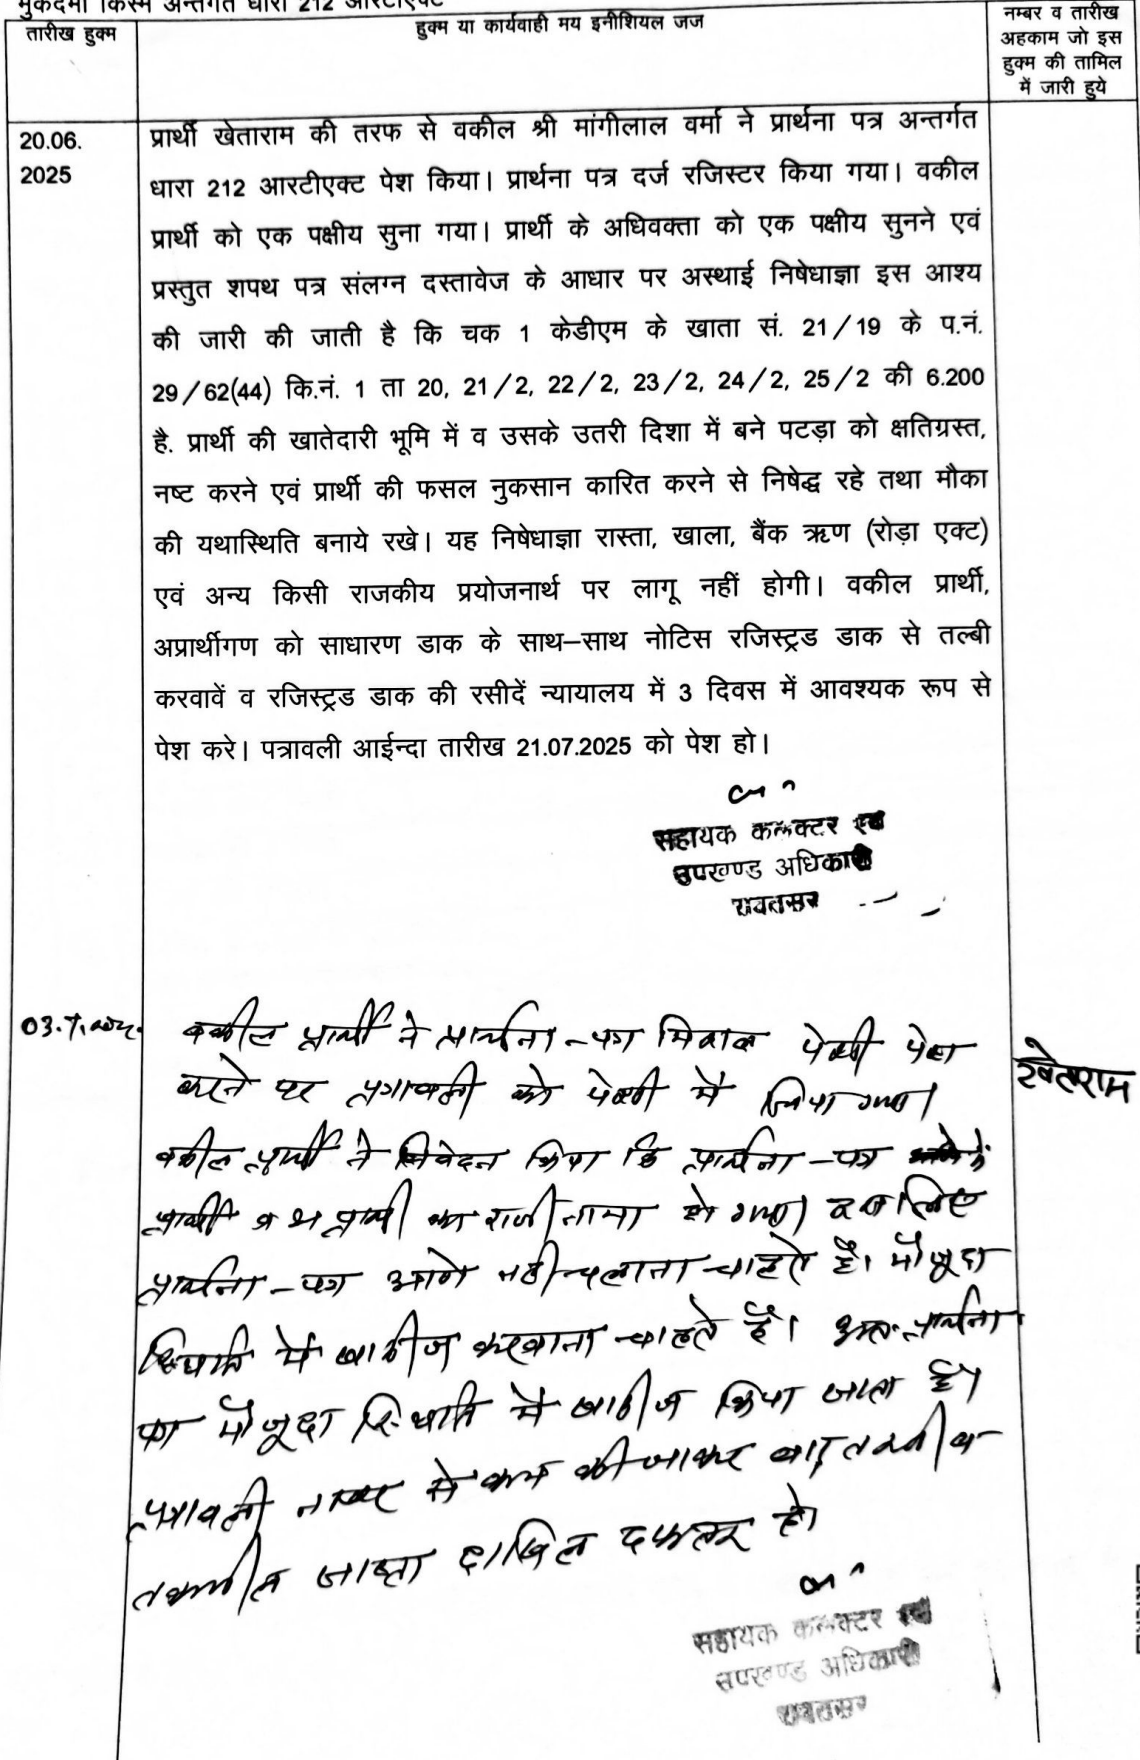 मुकदमा किस्म अन्तर्गत धारा 212 आरटीएक्ट
तारीख हुक्म
हुक्म या कार्यवाही मय इनीशियल जज
नम्बर व तारीख
अहकाम जो इस
हुक्म की तामिल
में जारी हुये
20.06.
2025
प्रार्थी खेताराम की तरफ से वकील श्री मांगीलाल वर्मा ने प्रार्थना पत्र अन्तर्गत
धारा 212 आरटीएक्ट पेश किया। प्रार्थना पत्र दर्ज रजिस्टर किया गया। वकील
प्रार्थी को एक पक्षीय सुना गया। प्रार्थी के अधिवक्ता को एक पक्षीय सुनने एवं
प्रस्तुत शपथ पत्र संलग्न दस्तावेज के आधार पर अस्थाई निषेधाज्ञा इस आश्य
की जारी की जाती है कि चक 1 केडीएम के खाता सं. 21/19 के प.नं.
29/62(44) कि.नं. 1 ता 20, 21/2, 22/2, 23/2, 24/2, 25/2 की 6.200
है. प्रार्थी की खातेदारी भूमि में व उसके उतरी दिशा में बने पटड़ा को क्षतिग्रस्त,
नष्ट करने एवं प्रार्थी की फसल नुकसान कारित करने से निषेद्ध रहे तथा मौका
की यथास्थिति बनाये रखे। यह निषेधाज्ञा रास्ता, खाला, बैंक ऋण (रोड़ा एक्ट)
एवं अन्य किसी राजकीय प्रयोजनार्थ पर लागू नहीं होगी। वकील प्रार्थी,
अप्रार्थीगण को साधारण डाक के साथ–साथ नोटिस रजिस्ट्रड डाक से तल्बी
करवावें व रजिस्ट्रड डाक की रसीदें न्यायालय में 3 दिवस में आवश्यक रूप से
पेश करे। पत्रावली आईन्दा तारीख 21.07.2025 को पेश हो।
सहायक कलक्टर एवं
उपखण्ड अधिकारी
रावतसर
03.7.
वकील प्रार्थी ने प्रार्थना-पत्र पेशी पेश
करने पर पत्रावली को पेशी में लिया गया।
वकील प्रार्थी ने निवेदन किया कि प्रार्थना-पत्र
प्रार्थी व अप्रार्थी का राजीनामा हो गया। इसलिए
प्रार्थना-पत्र आगे नहीं चलाना चाहते है। मौजूदा
स्थिति में खारीज करवाना चाहते है। अतः प्रार्थना
पत्र मौजूदा स्थिति में खारीज किया जाता है।
पत्रावली नम्बर से कम की जाकर बाद तरतीब व
तकमील जाब्ता दाखिल दफ्तर हो।
खेताराम
सहायक कलक्टर एवं
उपखण्ड अधिकारी
रावतसर